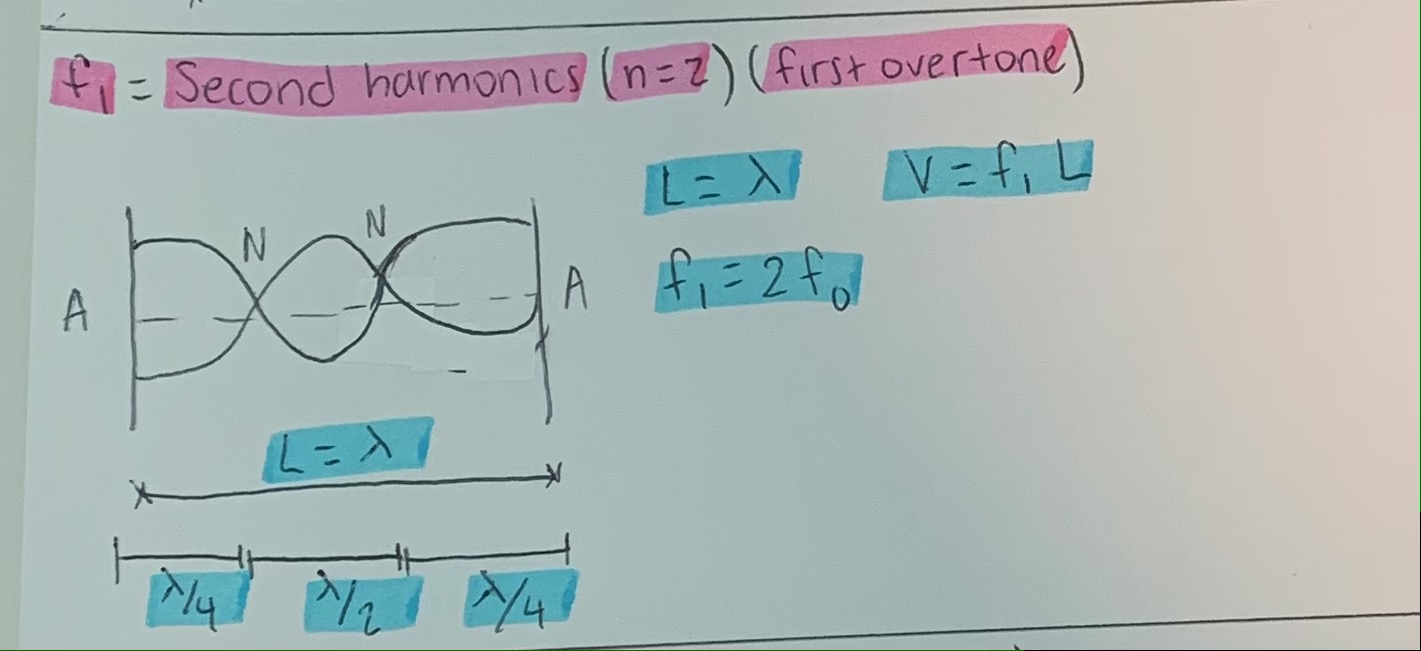 f₁ = Second harmonics (n=2) (first overtone)
L = λ V = f₁ L
N N
f₁ = 2f₀
A A
L = λ
λ/4 λ/2 λ/4